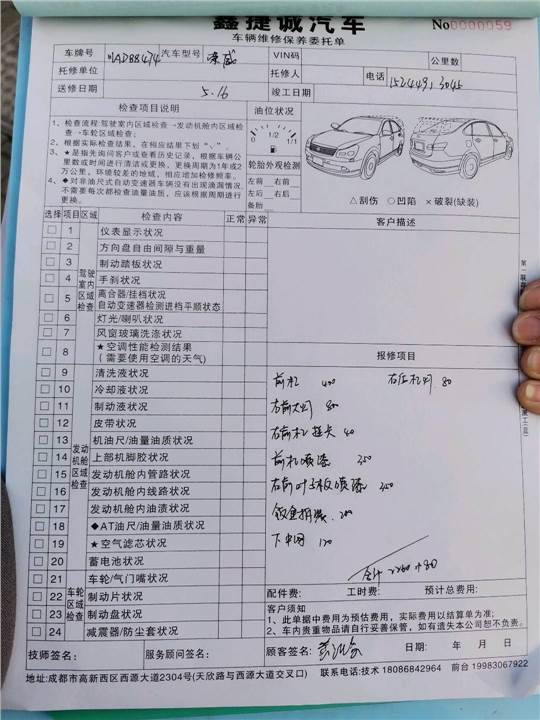 鑫捷诚汽车
车辆维修保养委托单
No 0000059
车牌号 汽车型号 荣威 VIN码 公里数
托修单位 托修人 电话
送修日期 5.16 竣工日期
检查项目说明
1、检查流程:驾驶室内区域检查→发动机舱内区域检查→车轮区域检查;
2、根据实际检查结果,在相应结果下划"、"。
3、★是指先询问客户或查看历史记录,根据车辆公里数或时间进行清洁或更换,更换周期为1年或2万公里,环境较差的地域,相应增加检修频率。
4、◆对非油尺式自动变速器车辆没有出现渗漏情况,不需要每次都检查油量油质,应该根据周期进行更换。
油位状况
0 1/2 1/1
轮胎外观检测
左前 右前
左后 右后
备胎
△刮伤 ○凹陷 × 破裂(缺装)
选择 项目 区域 检查内容 正常 异常
驾驶室内区域检查
1 仪表显示状况
2 方向盘自由间隙与重量
3 制动踏板状况
4 手刹状况
5 离合器/挂档状况
自动变速器检测进档平顺状态
6 灯光/喇叭状况
7 风窗玻璃洗涤状况
8 ★空调性能检测结果
(需要使用空调的天气)
发动机舱区域检查
9 清洗液状况
10 冷却液状况
11 制动液状况
12 皮带状况
13 机油尺/油量油质状况
14 上部机脚胶状况
15 发动机舱内管路状况
16 发动机舱内线路状况
17 发动机舱内油渍状况
18 ◆AT油尺/油量油质状况
19 ★空气滤芯状况
20 蓄电池状况
车轮区域检查
21 车轮/气门嘴状况
22 制动片状况
23 制动盘状况
24 减震器/防尘套状况
客户描述
报修项目
前杠 400
80
右前大灯
右前杠 40
前杠喷漆 350
右前叶子板喷漆 350
钣金 200
下中网 120
合计 2260+80
配件费: 工时费: 预计总费用:
客户须知
1、此单据中费用为预估费用,实际费用以结算单为准;
2、车内贵重物品请自行妥善保管,如有遗失本公司恕不负责。
技师签名: 服务顾问签名: 顾客签名: 日期: 年 月 日
地址:成都市高新西区西源大道2304号(天欣路与西源大道交叉口) 联系电话:技术 18086842964 前台 19983067922